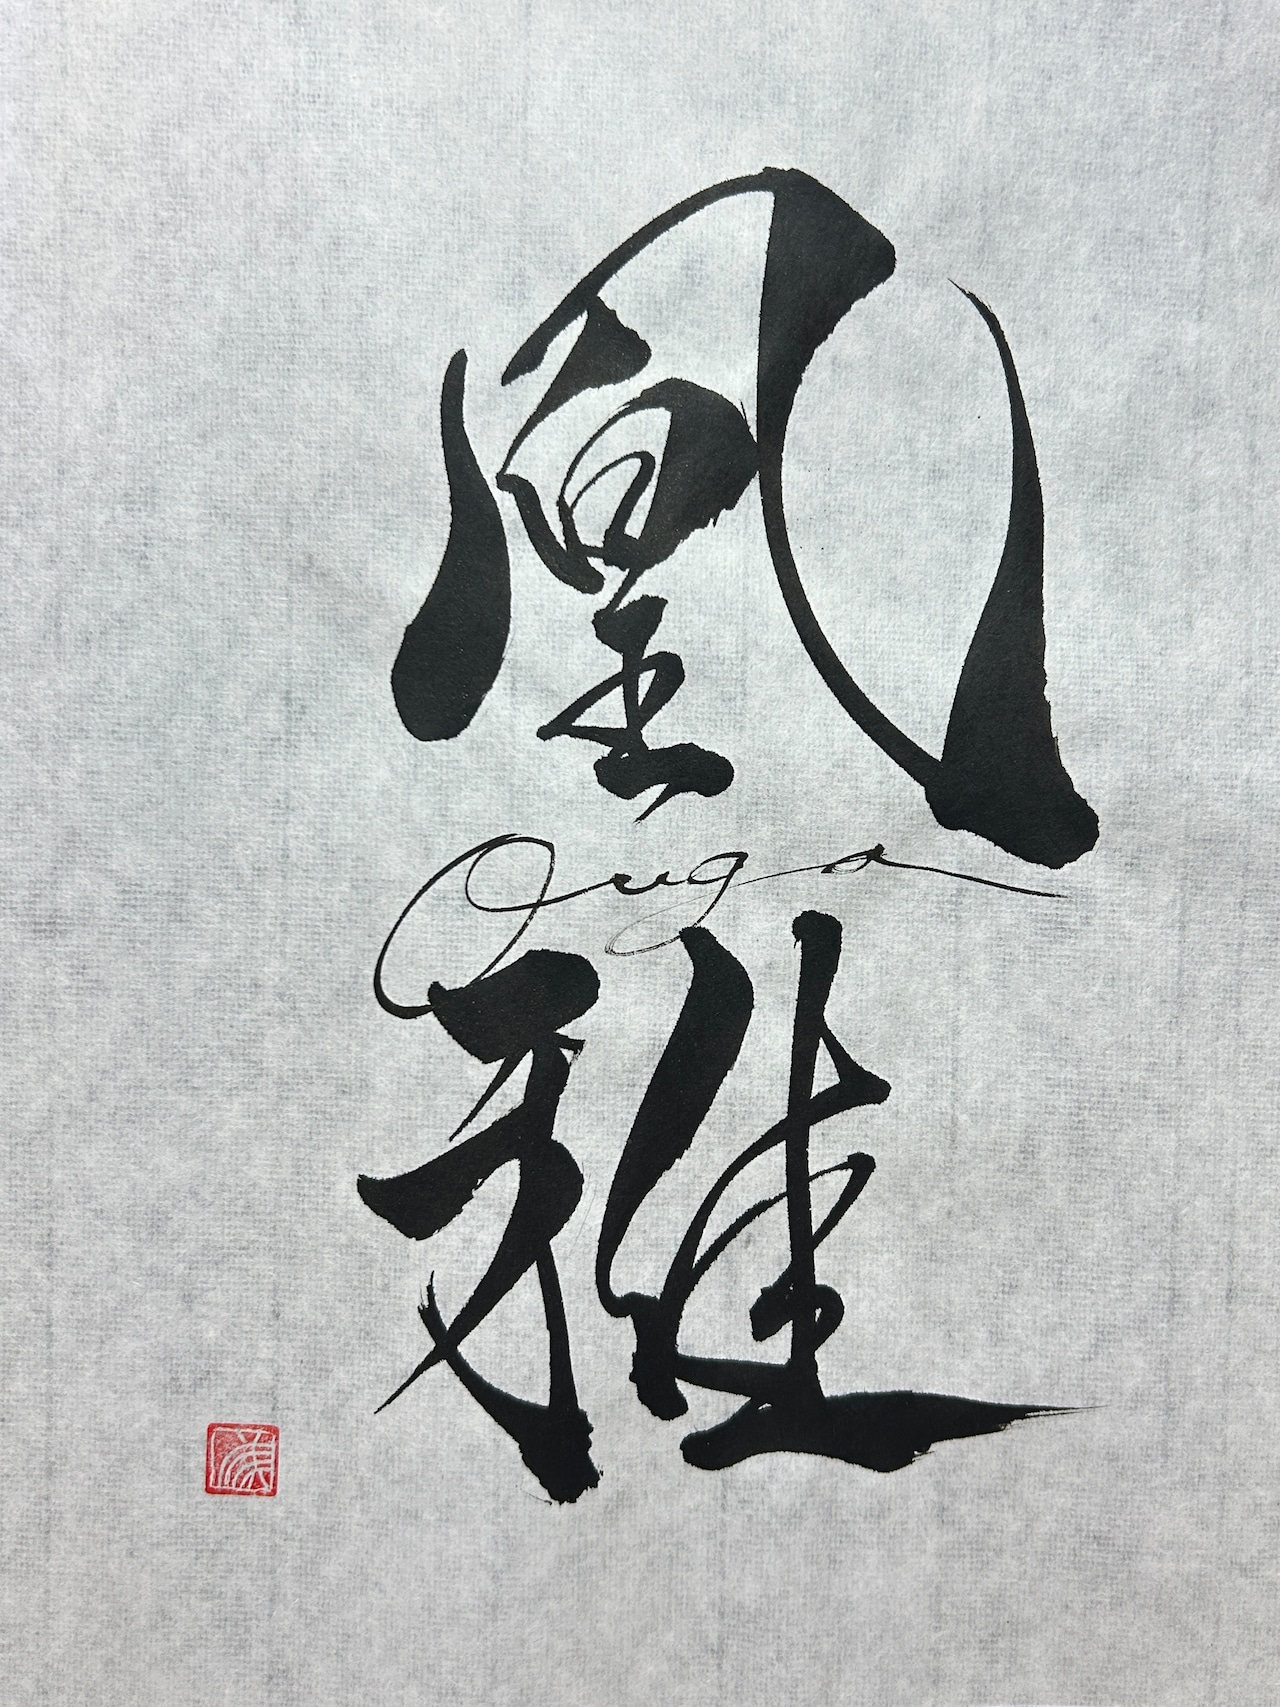 凰
Ouga
雅